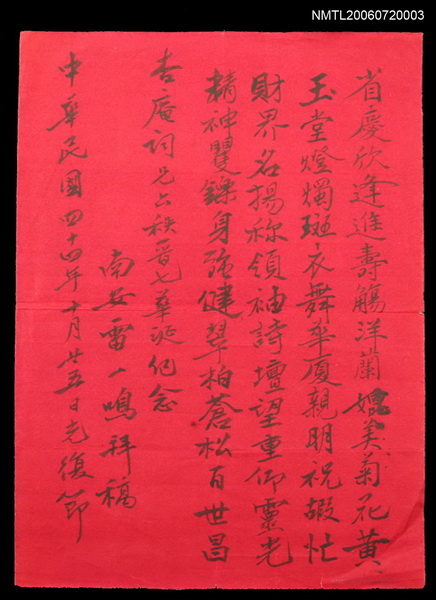 NMTL20060720003
省慶欣逢進壽觴洋蘭媲美菊花黃
玉堂燈燭斑衣舞華厦親朋祝嘏忙
財界名揚称領袖詩壇望重仰靈光
精神矍鑠身強健翠柏蒼松百世昌
杏庵詞兄六秩晉七華誕紀念
南安雷一鳴拜稿
中華民國四十四年十月廿五日光復節